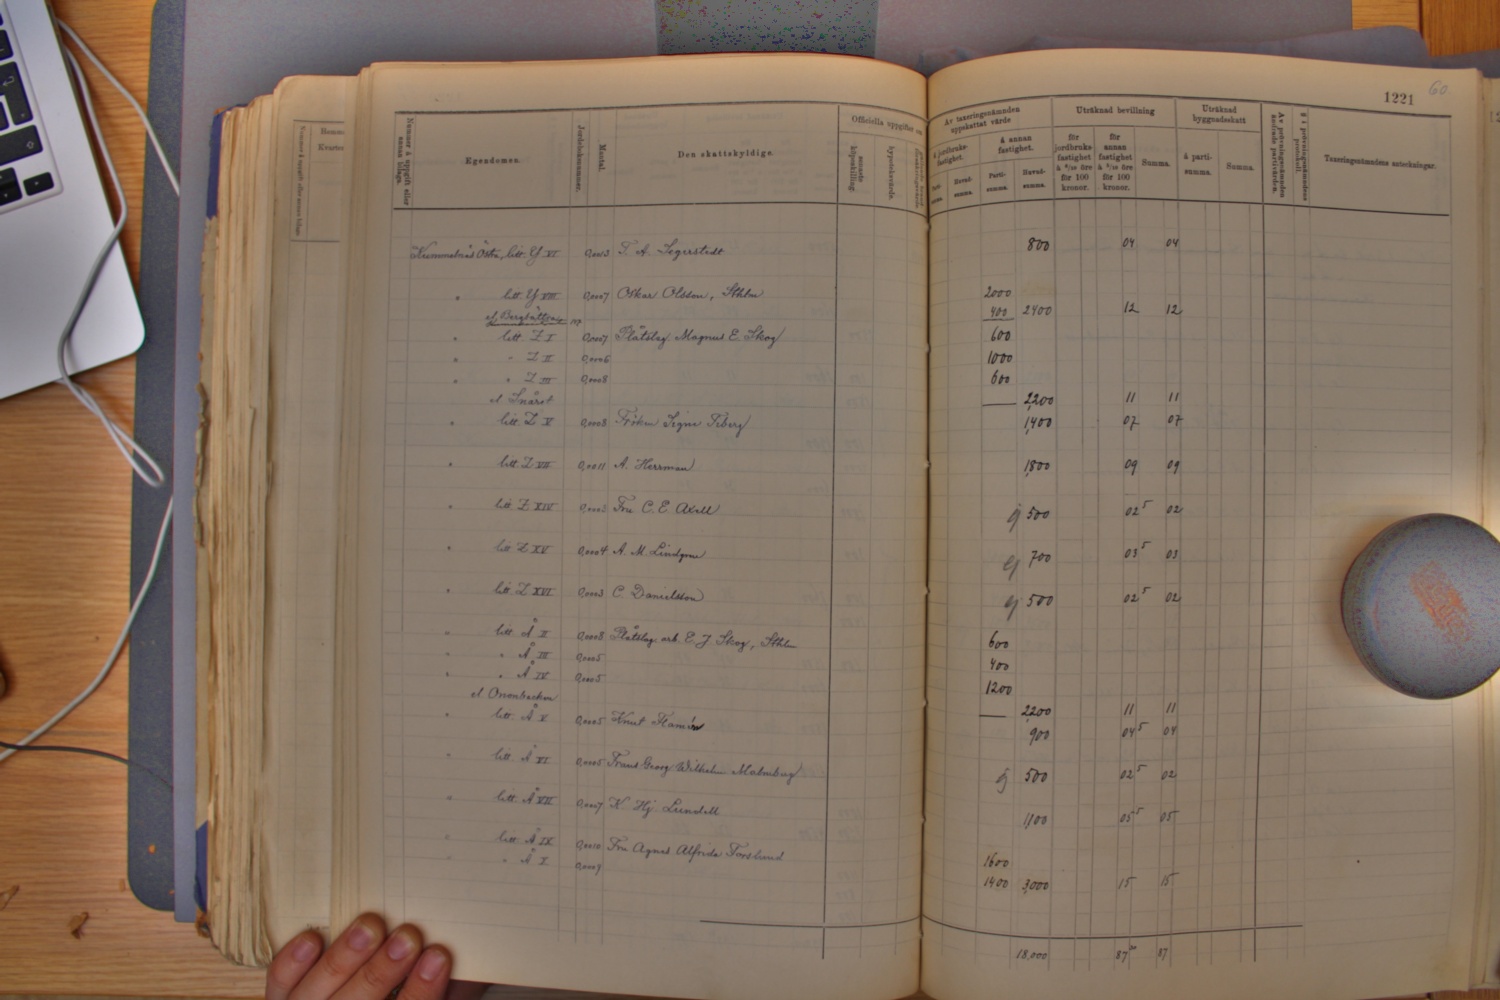 1221
60
Nummer å uppgift eller annan bilaga.
Egendomen.
Jordeboksnummer.
Mantal.
Den skattskyldige.
Officiella uppgifter om
senaste köpeskilling.
hypoteksvärde.
Av taxeringsnämnden uppskattat värde
å jordbruksfastighet.
å annan fastighet.
Parti-summa.
Huvud-summa.
Parti-summa.
Huvud-summa.
Uträknad bevillning
för jordbruksfastighet
för 100 kronor.
för annan fastighet
för 100 kronor.
Summa.
Uträknad byggnadsskatt
å parti-summa.
Summa.
Av prövningsnämnden ändrade partivärden.
§ i prövningsnämndens protokoll.
Taxeringsnämndens anteckningar.
Kummelnäs Östra, litt. Y VI 0,0003 T. A. Segerstedt 800 04 04
" litt. Y VIII 0,0007 Oskar Olsson, Sthlm 2000
400 2400 12 12
" litt. Z I 0,0007 Plåtslag. Magnus E. Skog 600
" " Z II 0,0006 1000
" " Z III 0,0008 600
el Snäret 2,200 11 11
" litt. Z V 0,0008 Fröken Signe Friberg 1,400 07 07
" litt. Z VII 0,0011 A. Herrman 1,800 09 09
" litt. Z XIV 0,0003 Fru C. E. Axell ej 500 02⁵ 02
" litt. Z XV 0,0004 A. M. Lindgren ej 700 03⁵ 03
" litt. Z XVI 0,0003 C. Danielsson ej 500 02⁵ 02
" litt. Å II 0,0008 Plåtslag. arb. E. J. Skog, Sthlm 600
" " Å III 0,0005 400
" " Å IV 0,0005 1200
el 2,200 11 11
" litt. Å V 0,0005 Knut 900 04⁵ 04
" litt. Å VI 0,0005 Frans Georg Wilhelm Malmberg ej 500 02⁵ 02
" litt. Å VII 0,0007 K. Hj. Lundell 1,100 05⁵ 05
" litt. Å IX 0,0010 Fru Agnes Alfrida Forslund 1600
" " Å X 0,0009 1400 3,000 15 15
18,000 87 87